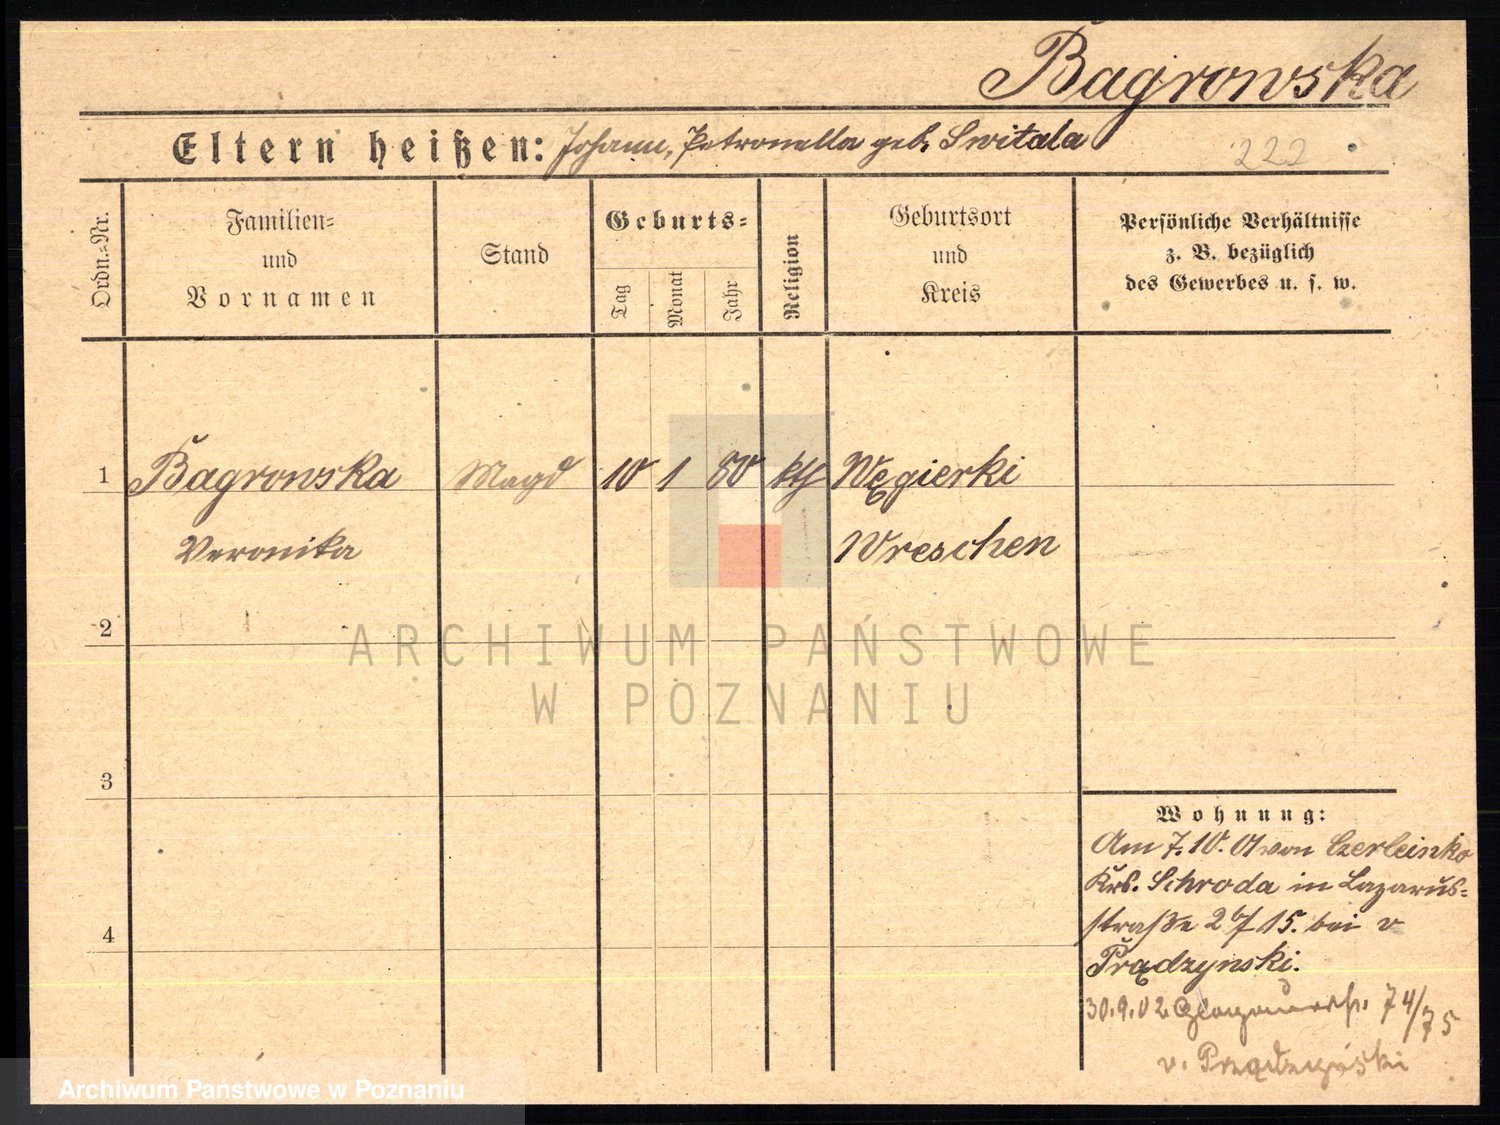 Bagrowska
Eltern heißen: Johann, Petronella geb. Switala
222
Ordn.-Nr.
Familien-
und
Vornamen
Stand
Geburts-
Tag
Monat
Jahr
Religion
Geburtsort
und
Kreis
Persönliche Verhältnisse
z. B. bezüglich
des Gewerbes u. s. w.
1 Bagrowska Magd 10 1 80 kth Węgierki
Veronika Wreschen
2
ARCHIWUM PAŃSTWOWE
W POZNANIU
3
Wohnung:
Am 7.10.01 von Czerleinko
Krs. Schroda in Lazarus-
4
straße 2b/15. bei v
Prądzynski.
30.9.02 Glogauerstr. 74/75
v. Prądzyński
Archiwum Państwowe w Poznaniu